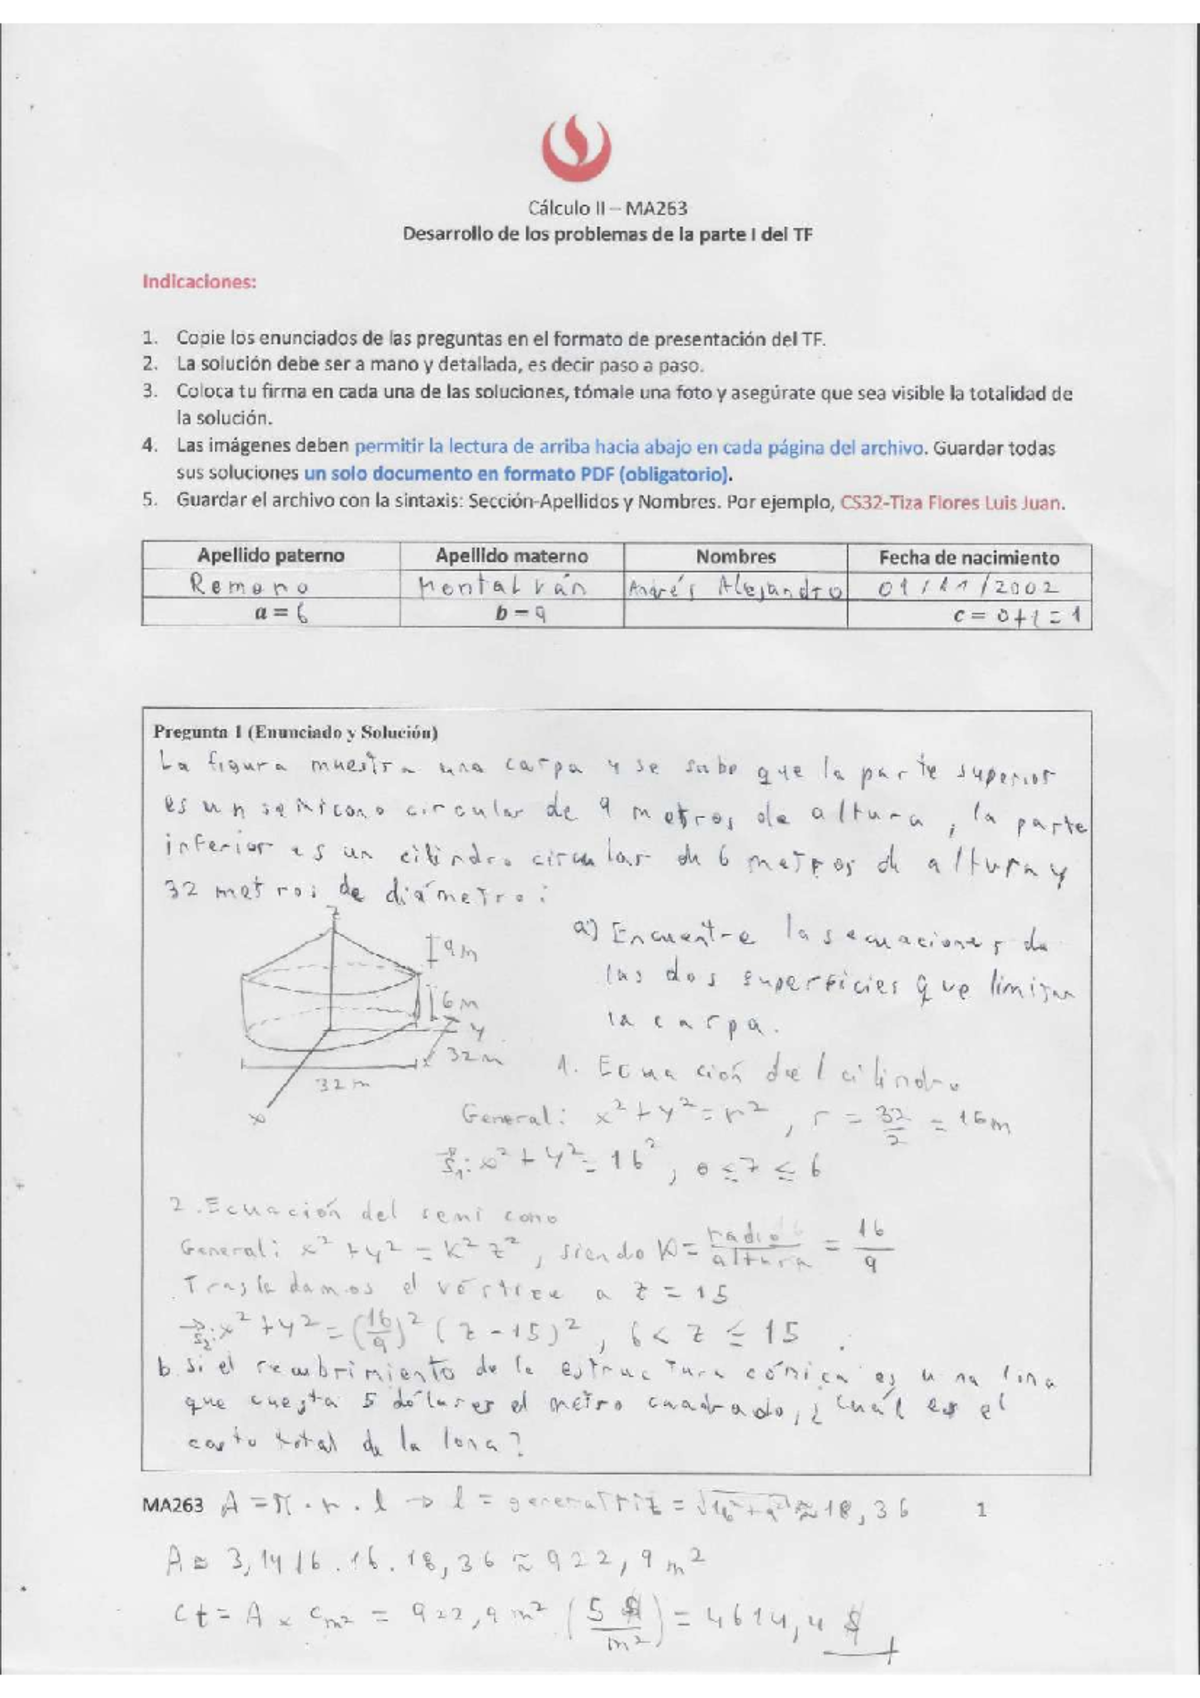 Cálculo II – MA263
Desarrollo de los problemas de la parte I del TF
Indicaciones:
1. Copie los enunciados de las preguntas en el formato de presentación del TF.
2. La solución debe ser a mano y detallada, es decir paso a paso.
3. Coloca tu firma en cada una de las soluciones, tómale una foto y asegúrate que sea visible la totalidad de
la solución.
4. Las imágenes deben permitir la lectura de arriba hacia abajo en cada página del archivo. Guardar todas
sus soluciones un solo documento en formato PDF (obligatorio).
5. Guardar el archivo con la sintaxis: Sección-Apellidos y Nombres. Por ejemplo, CS32-Tiza Flores Luis Juan.
Apellido paterno Apellido materno Nombres Fecha de nacimiento
Romano Montalván Andrés Alejandro 01/11/2002
a = 6 b = 9 c = 0+1 = 1
Pregunta 1 (Enunciado y Solución)
La figura muestra una carpa y se sabe que la parte superior
es un semicono circular de 9 metros de altura, la parte
inferior es un cilindro circular de 6 metros de altura y
32 metros de diámetro:
z
9m
6m
y
32m
32m
x
a) Encuentre las ecuaciones de
las dos superficies que limitan
la carpa.
1. Ecuación del cilindro
General: x² + y² = r², r = 32/2 = 16m
→ S₁: x² + y² = 16², 0 ≤ z ≤ 6
2. Ecuación del semi cono
General: x² + y² = K² z², siendo K = radio/altura = 16/9
Trasladamos el vértice a z = 15
→ S₂: x² + y² = (16/9)² (z - 15)², 6 < z ≤ 15.
b. Si el recubrimiento de la estructura cónica es una lona
que cuesta 5 dólares el metro cuadrado, ¿cuál es el
costo total de la lona?
MA263 A = π . r . l → l = generatriz = √16² + 9² ≈ 18,36 1
A ≈ 3,1416 . 16 . 18,36 ≈ 922,9 m²
Ct = A × Cm² = 922,9 m² (5 $/m²) = 4614,4 $